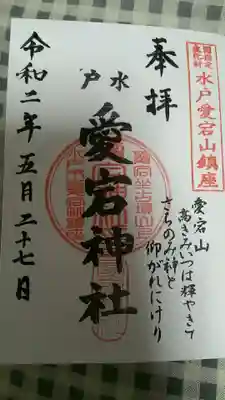 水戸愛宕山鎮座
奉拝
愛宕山
高きみいつは輝やきて
さちのみ神と
仰がれにけり
水戸
愛宕神社
令和二年五月二十七日